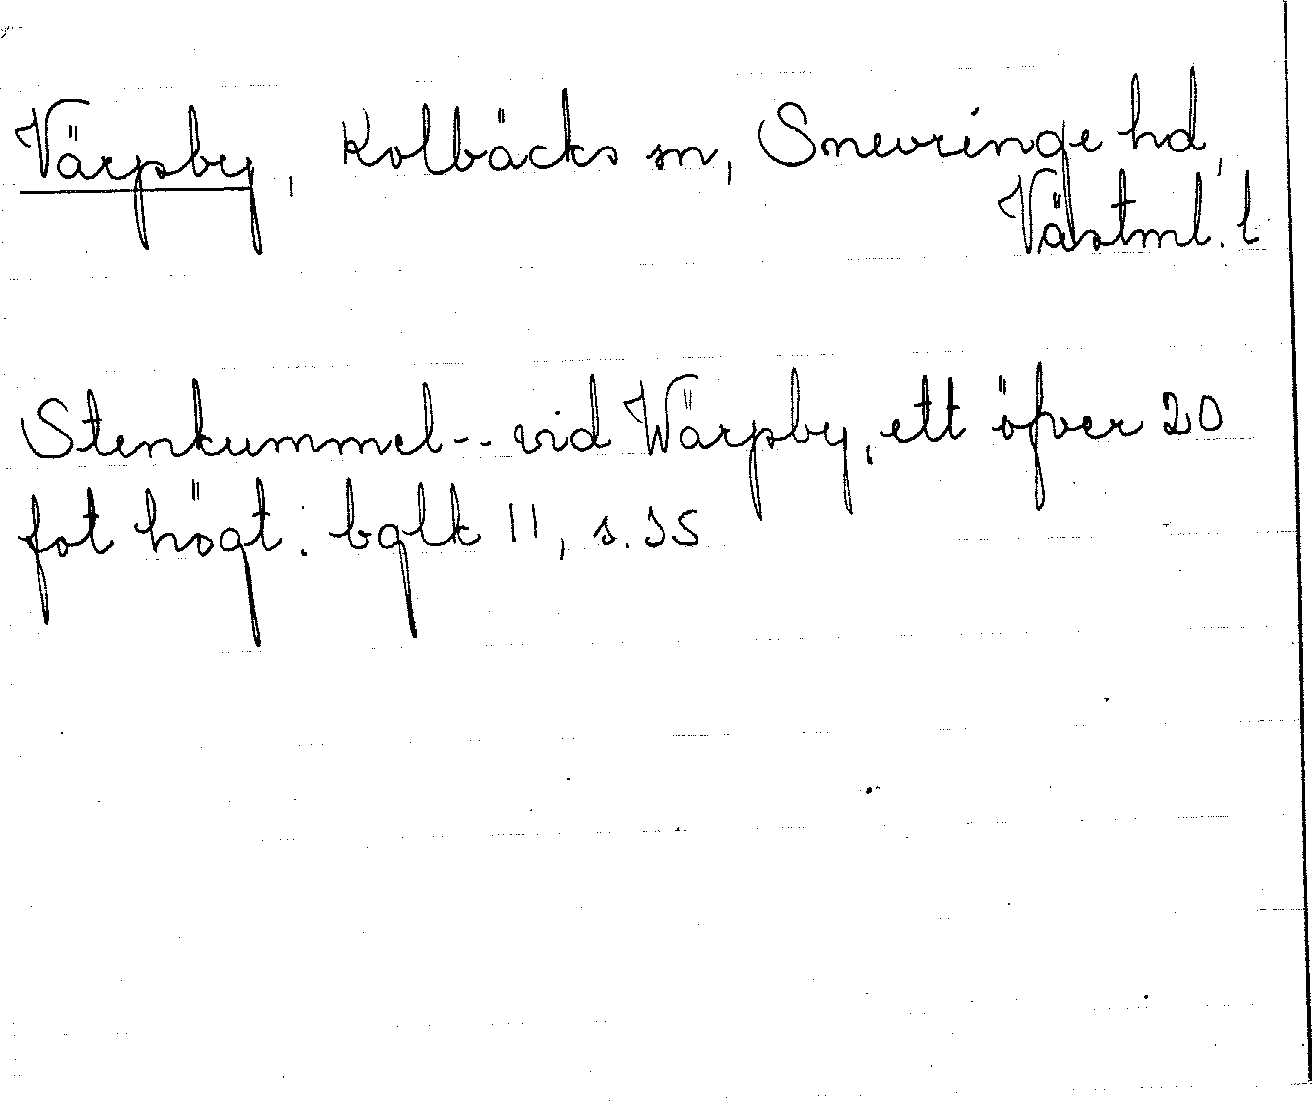 Värpby, Kolbäcks sn, Snevringe hd,
Västml. l
Stenkummel -- vid Wärpby, ett öfver 20
fot högt: bglk II, s. 35